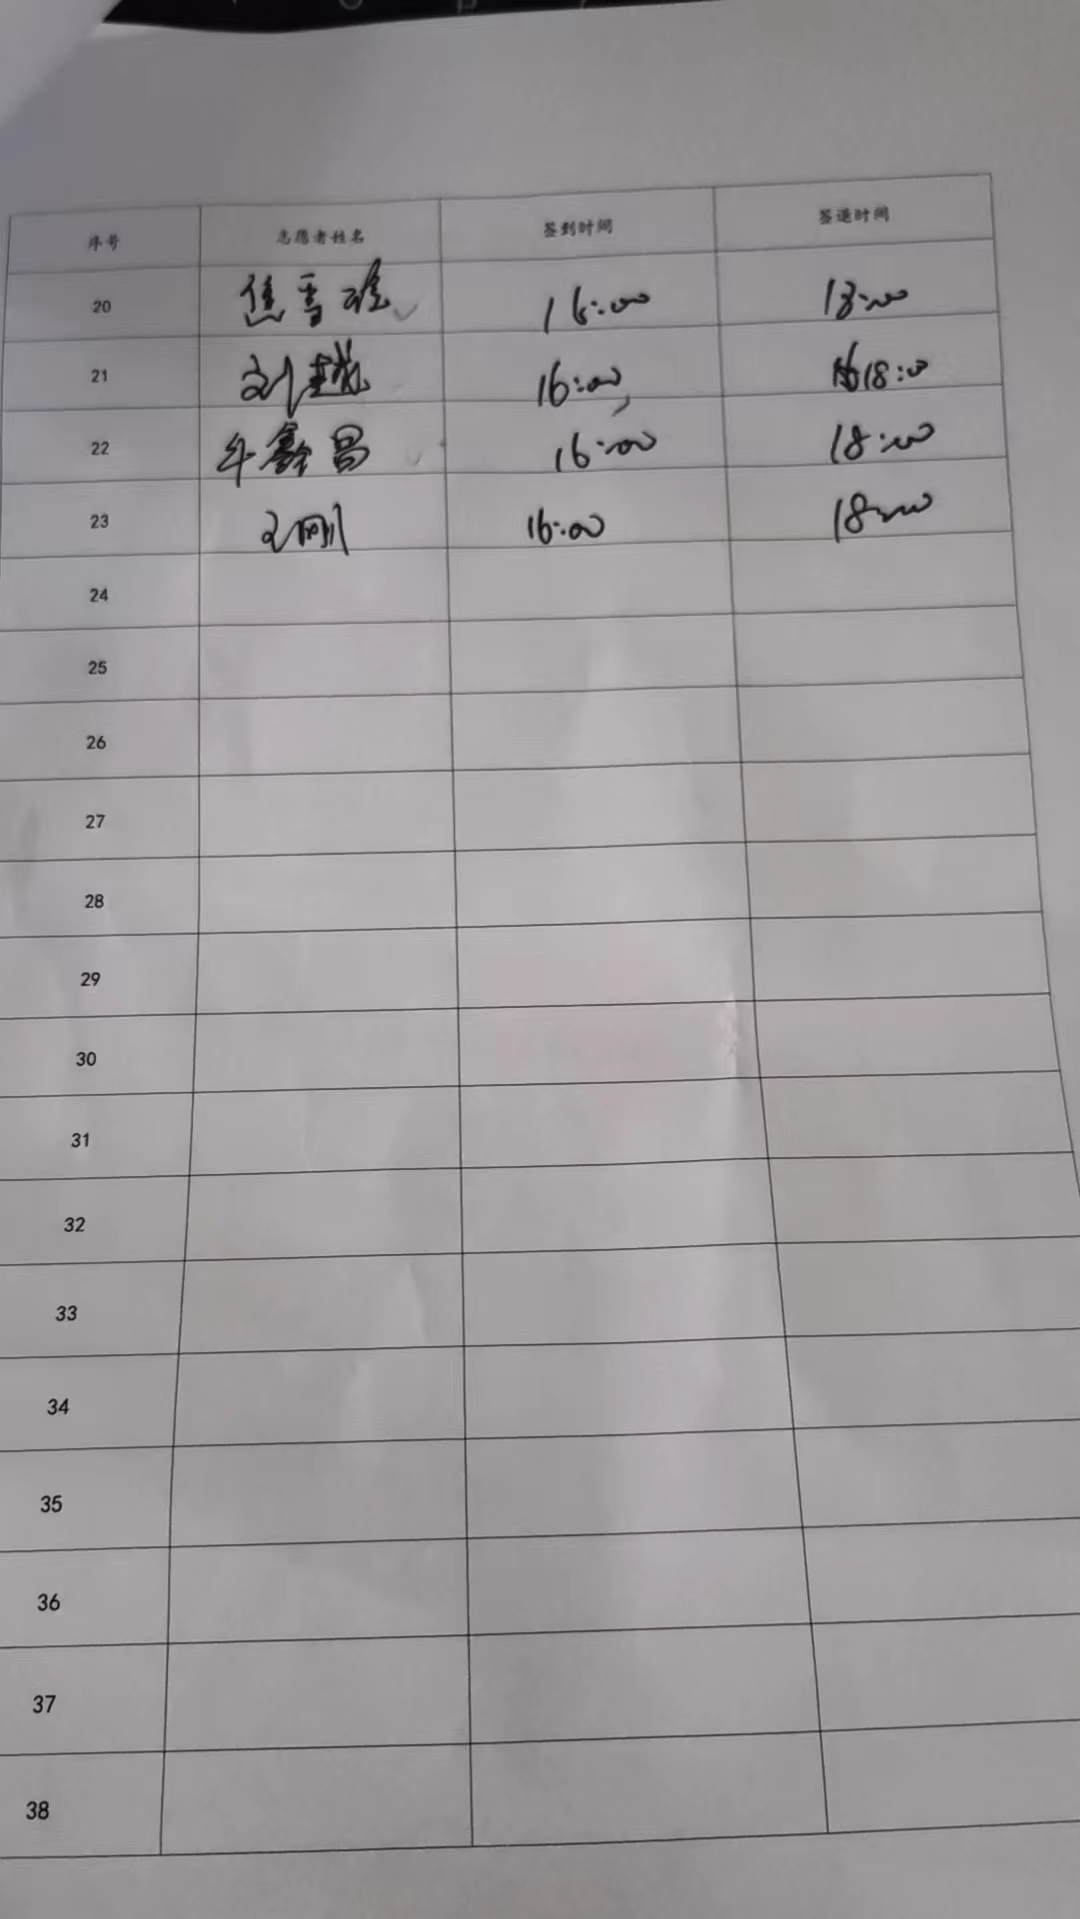 序号 志愿者姓名 签到时间 签退时间
20 焦雪 16:00 18:00
21 刘越 16:00 18:00
22 牛鑫昌 16:00 18:00
23 刚 16:00 18:00
24
25
26
27
28
29
30
31
32
33
34
35
36
37
38